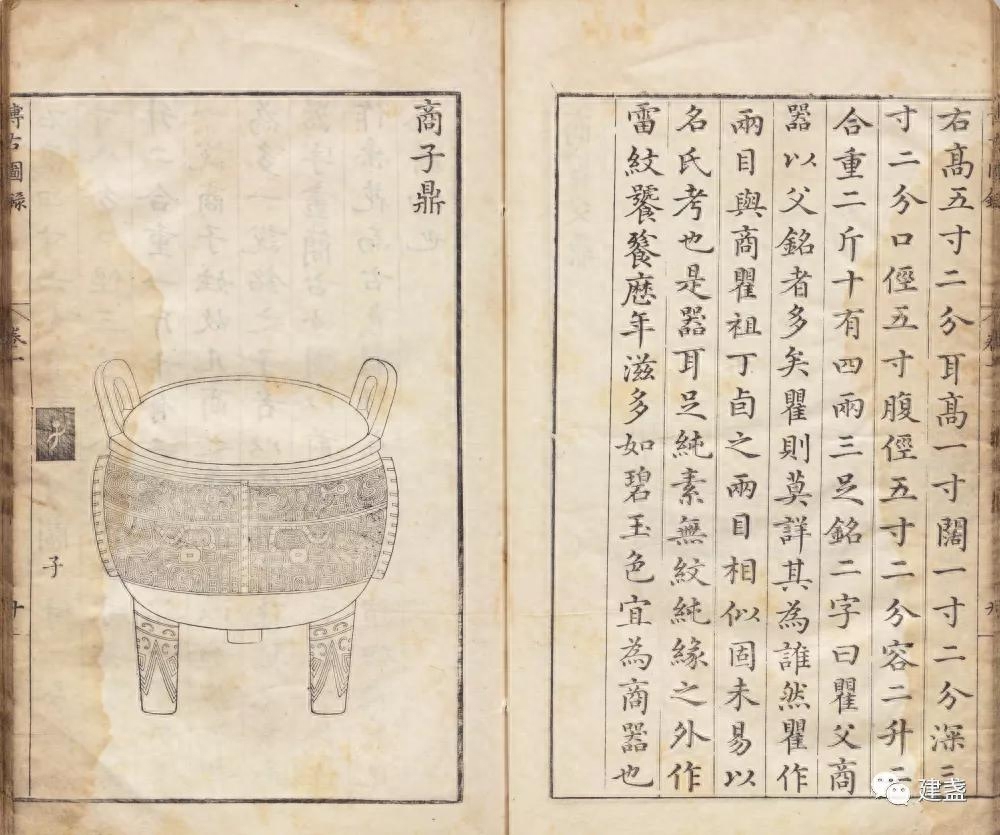 右髙五寸二分耳髙一寸闊一寸二分深三
寸二分口徑五寸腹徑五寸二分容二升二
合重二斤十有四兩三足銘二字曰瞿父商
器以父銘者多矣瞿則莫詳其為誰然瞿作
兩目與商瞿祖丁卣之兩目相似固未易以
名氏考也是器耳足純素無紋純緣之外作
雷紋饕餮歷年滋多如碧玉色宜為商器也
商子鼎
子
博古圖録
卷一
子
十
建盏